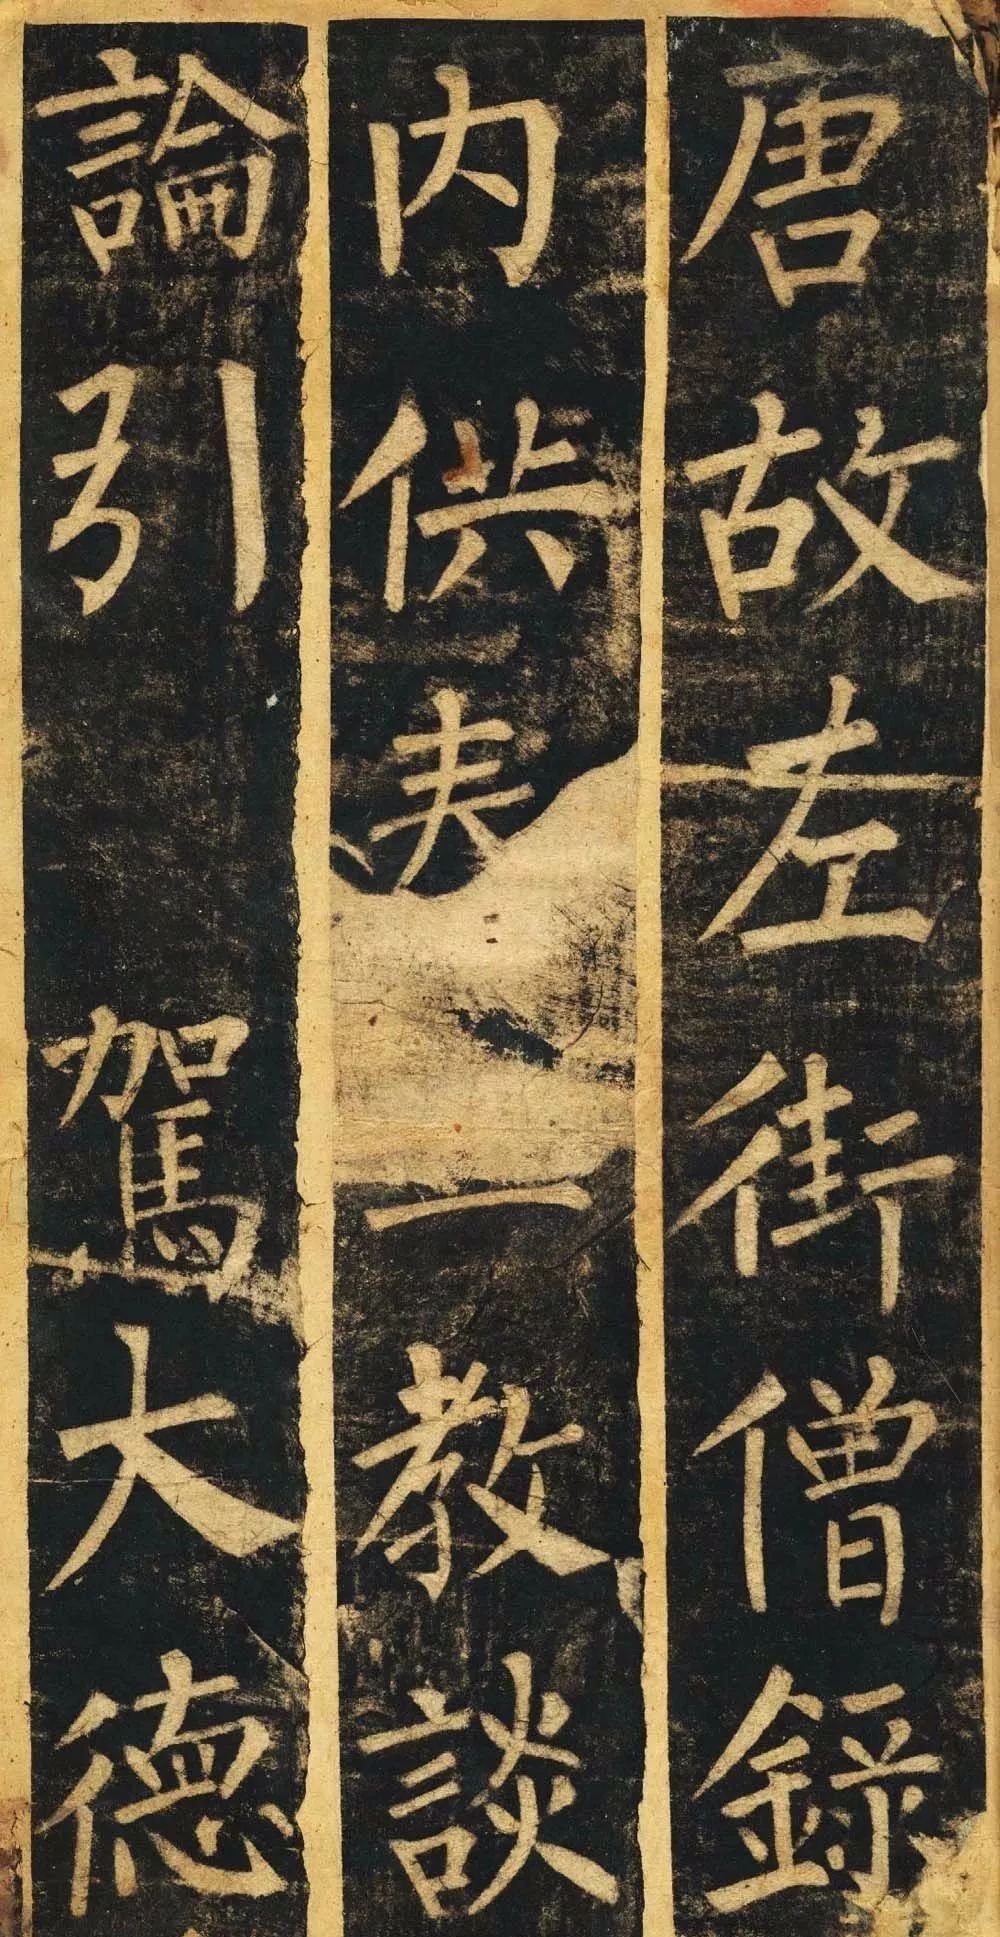 唐故左街僧錄
内供奉三教談
論引駕大德